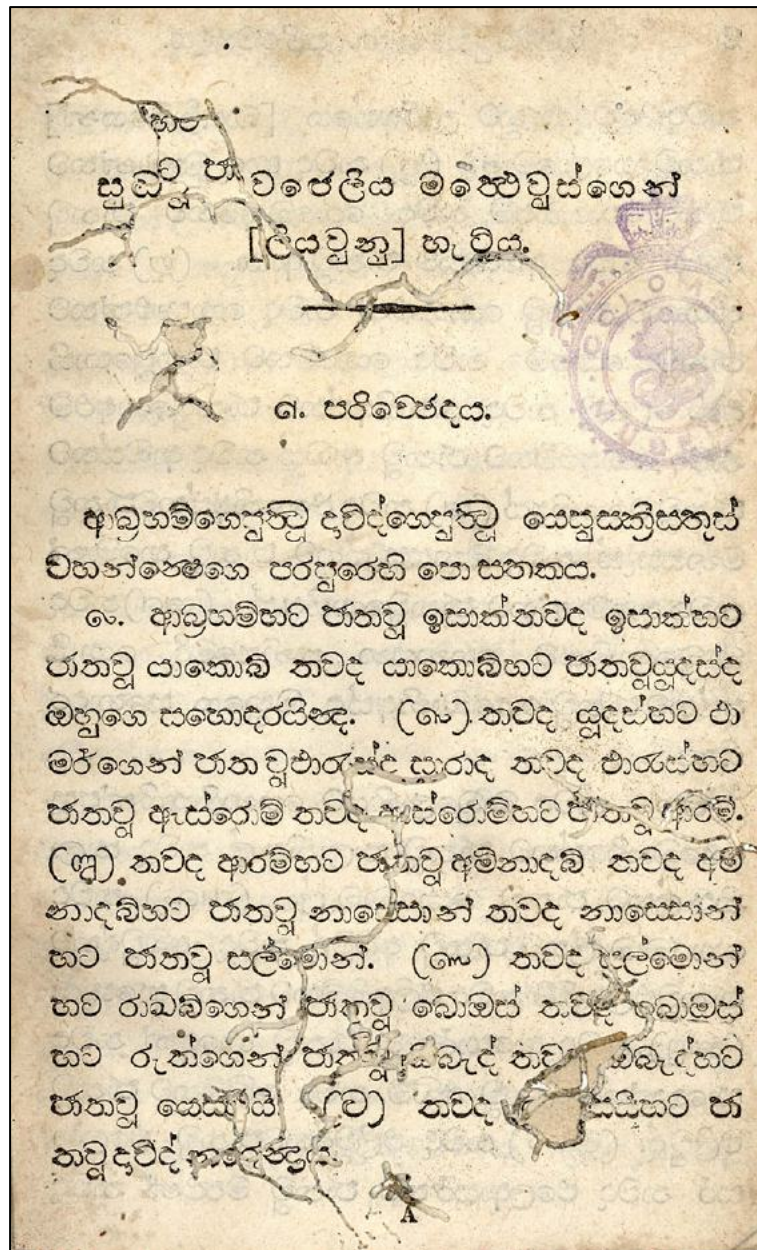 සුඬවූ වජෙලිය මත්‍ථෙවුස්ගෙන්
[ලියවුනු] හැටිය.
෧. පරිච්ඡෙදය.
ආබ්‍රහම්ගෙපුත්‍රවූ දාවිද්ගෙපුත්‍රවූ යෙසුසක්‍රිසතුස්
වහන්සෙගෙ පරපුරෙහි පොසතකය.
ආබ්‍රහම්හට ජාතවූ ඉසාක්තවද ඉසාක්හට
ජාතවූ යාකොබ් තවද යාකොබ්හට ජාතවූයූදස්ද
ඔහුගෙ සහොදරයින්‍ද. (෨) තවද යූදස්හට ථා
මර්ගෙන් ජාතවූඵාරැස්ද සාරාද තවද ඵාරැස්හට
ජාතවූ ඇස්රොම් තවද ඇස්රොම්හට ජාතවූ ආරම්.
(෪) තවද ආරම්හට ජාතවූ අම්නාදබ් තවද අම්
නාදබ්හට ජාතවූ නාසොන් තවද නාසොන්
හට ජාතවූ සල්මොන්. (෫) තවද සල්මොන්
හට රාඛබ්ගෙන් ජාතවූ බොඔස් තවද බොඔස්
හට රුත්ගෙන් ජාතවූ ඔබැද් තවද ඔබැද්හට
ජාතවූ තවද ජා
තවූදාවිද්
A